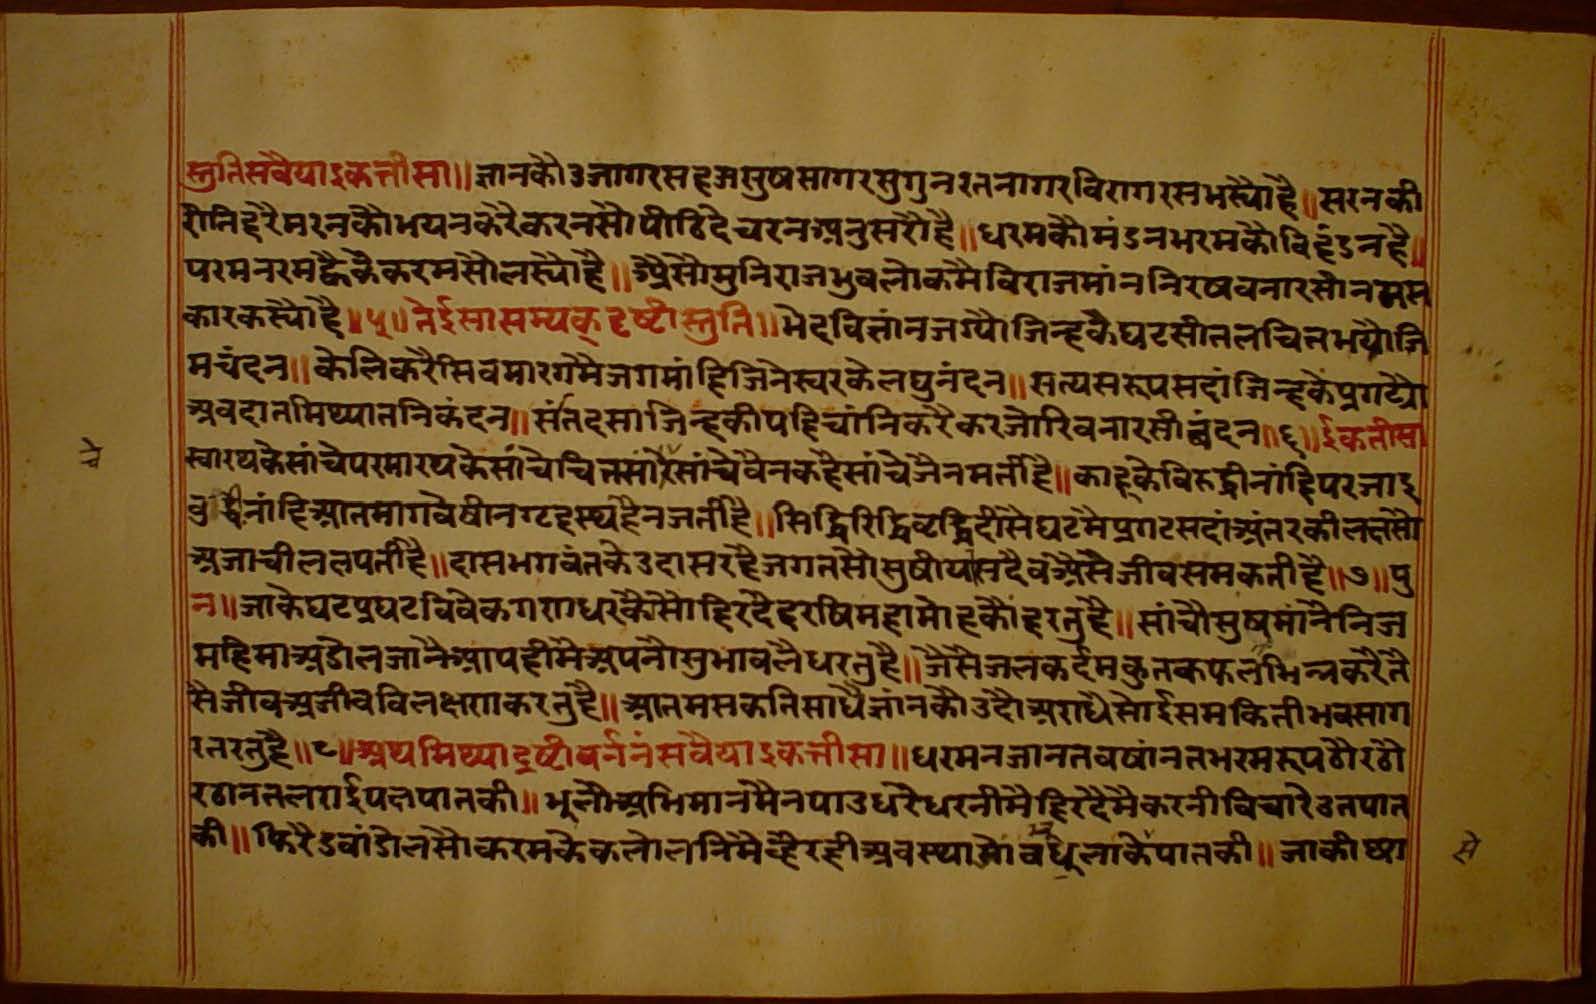 स्तुति सवैया इकत्तीसा॥ ज्ञानकौ उजागर सहज सुष सागर सुगुन रतनागर विराग रस भर्यौ है॥ सरन की
रीति हरै मरनकौ भय न करै करनसौ पीठि दे चरन अनुसरौ है॥ धरमकौ मंडन भरमकौ विहंडन है॥
परम नरम ह्वैकै करमसौ लर्यौ है॥ अैसौ मुनिराज भुवलोकमै विराजमांन निरषि वनारसी नमस
कार कर्यौ है॥५॥ तेईसा सम्यक् दृष्टी स्तुति॥ भेदविज्ञांन जग्यौ जिन्हकै घट सीतल चित भयौ जि
म चंदन॥ केलि करै सिवमारगमै जगमांहि जिनेस्वरके लघुनंदन॥ सत्य सरूप सदां जिन्हकै प्रगट्यौ
अवदात मिथ्यात निकंदन॥ संतदसा जिन्हकी पहिचांनि करै कर जोरि वनारसी बंदन॥६॥ ईकतीसा
स्वारथके सांचे परमारथके सांचे चित्त सांचे वैन कहै सांचे जैनमती है॥ काहूके विरुद्धी नांहि परजाइ
बुद्धी नांहि आतमागवेषी न गृहस्थ है न जती है॥ सिद्धि रिद्धि वृद्धि दीसै घटमै प्रगट सदां अंतरकी लक्षसौ
अजाची लक्षपती है॥ दास भगवंतके उदास रहै जगतसौ सुषीया सदैव अैसे जीव समकती है॥७॥ पु
न॥ जाकै घट प्रघट विवेक गणधरकैसौ हिरदै हरषि महामोहकौं हरतु है॥ सांचौ सुष मांनै निज
महिमा अडोल जानै आपहीमै अपनौ सुभाव लै धरतु है॥ जैसै जलकर्दम कुतकफल भिन्न करै तै
सै जीव अजीव विलक्षण करतु है॥ आतम सकति साधै ज्ञांनकौ उदौ अराधै सोई समकिती भवसाग
र तरतु है॥८॥ अथ मिथ्यादृष्टी वर्ननं सवैया इकत्तीसा॥ धरम न जानत वषांनत भरमरूप ठौर ठौ
र ठानत लराई पक्षपातकी॥ भूलौ अभिमानमै न पाउ धरै धरनीमै हिरदैमै करनी विचारै उतपात
की॥ फिरै डवांडोलसौ करमके कलोलनिमै व्हैरही अवस्था पातकी॥ जाकी छा
चे
से